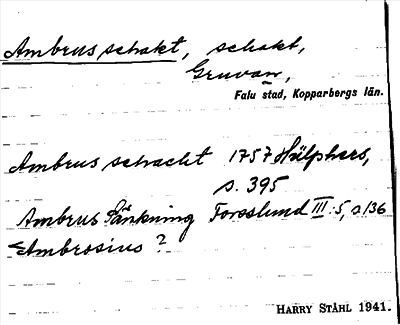 Ambrus schakt, schakt,
Gruvan,
Falu stad, Kopparbergs län.
Ambrus schacht 1757 Hülphers,
s. 395
Ambrus Sänkning Forsslund III:5, s 136
Ambrosius?
HARRY STÅHL 1941.